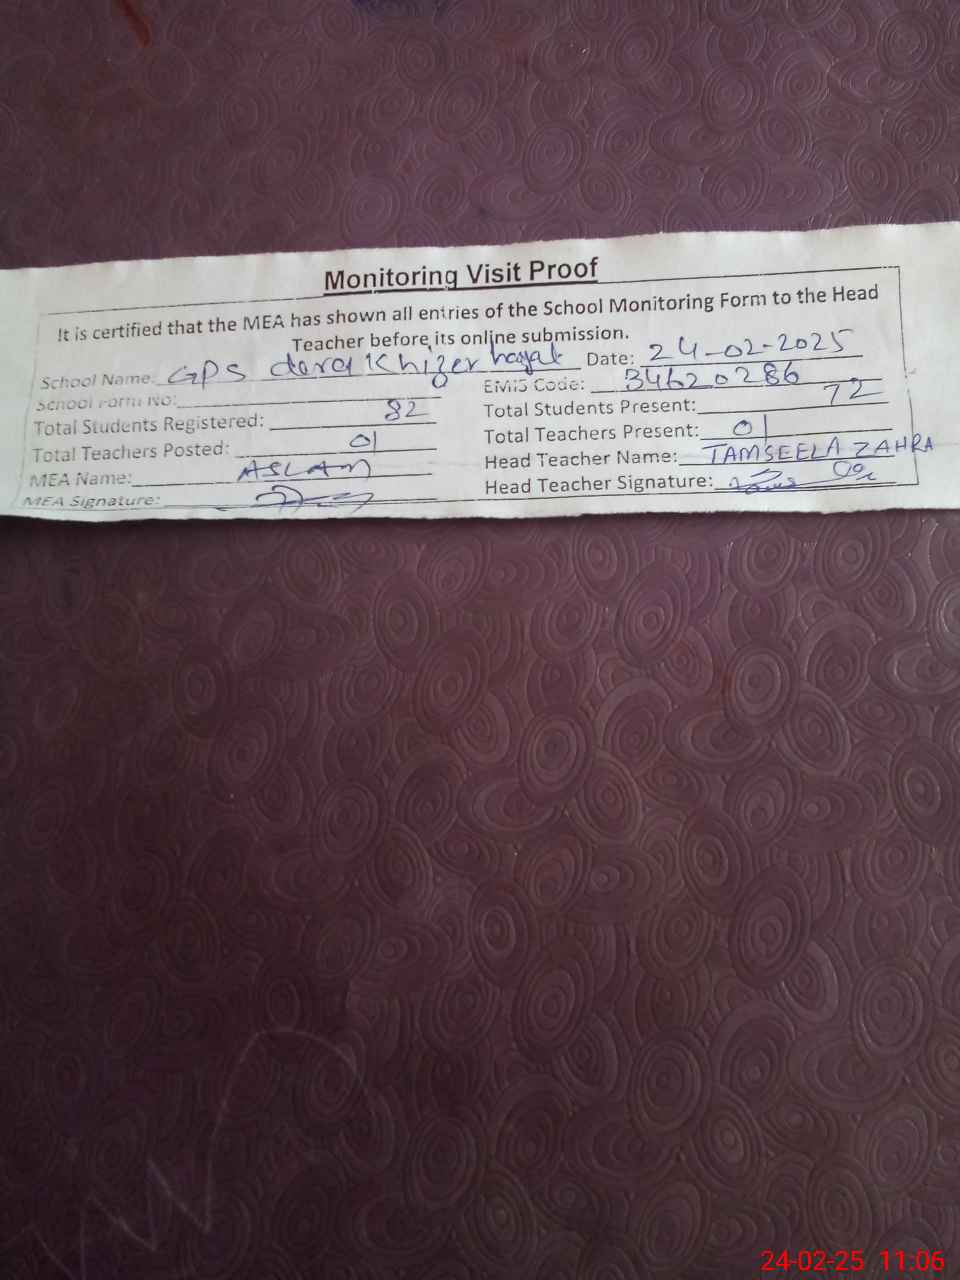 Monitoring Visit Proof
It is certified that the MEA has shown all entries of the School Monitoring Form to the Head
Teacher before its online submission.
School Name: GPS dera Khizer hayat Date: 24-02-2025
School Form No: EMIS Code: 34620286
Total Students Registered: 82 Total Students Present: 72
Total Teachers Posted: 01 Total Teachers Present: 01
MEA Name: ASLAM Head Teacher Name: TAMSEELA ZAHRA
MEA Signature: Head Teacher Signature:
24-02-25 11:06